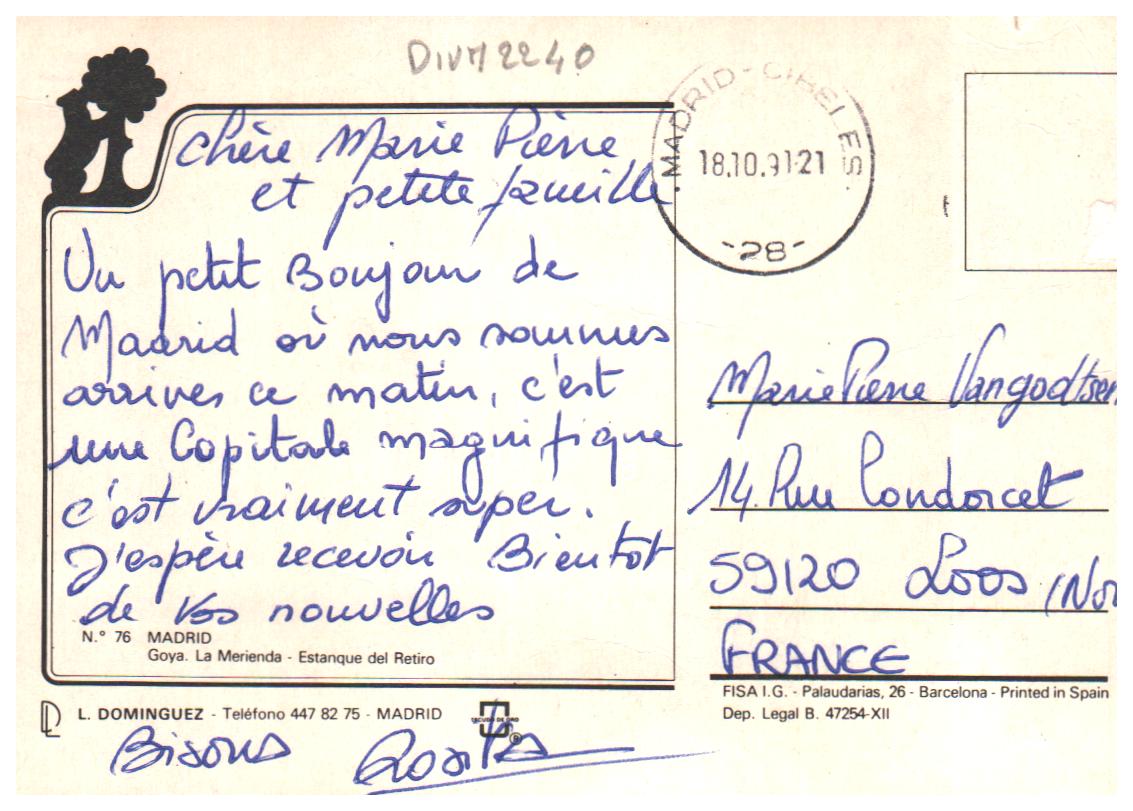 DIVM2240
MADRID-CIBELES
18.10.91-21
-28-
chère Marie Pierre
et petite famille
Un petit Bonjour de
Madrid où nous sommes
arrives ce matin, c'est
une Capitale magnifique
c'est vraiment super.
J'espère recevoir Bientot
de Vos nouvelles
N.° 76 MADRID
Goya. La Merienda - Estanque del Retiro
L. DOMINGUEZ - Teléfono 447 82 75 - MADRID
ESCUDO DE ORO
Bisous Rosita
Marie Pierre Vangodtsen
14. Rue Condorcet
59120 Loos (Nor
FRANCE
FISA I.G. - Palaudarias, 26 - Barcelona - Printed in Spain
Dep. Legal B. 47254-XII